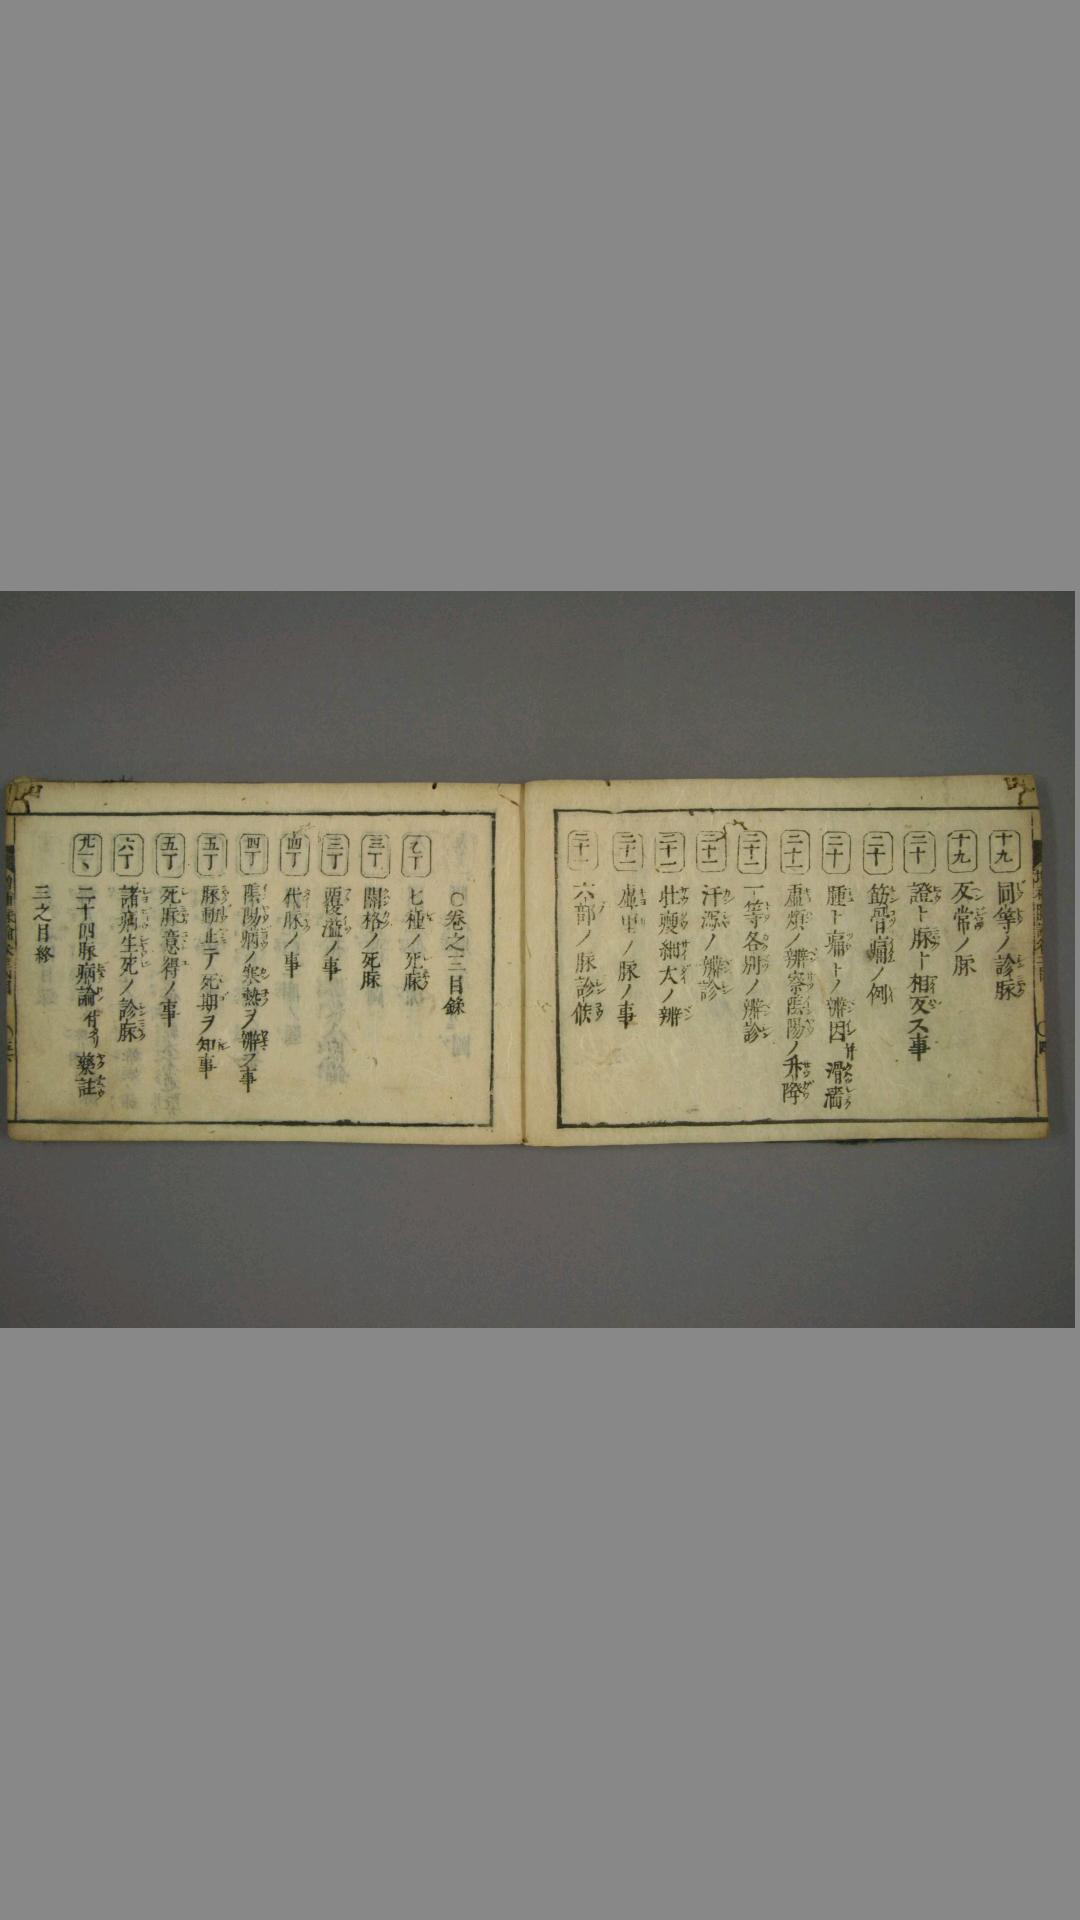 十九 同等ノ診脈
十九 反常ノ脈
二十 證ト脈ト相反ス事
二十 筋骨痛ノ例
二十 腫ト痛ト辨因 并 滑濡
二十一 虚煩ノ辨察陰陽ノ升降
二十一 一等各別ノ辨診
二十一 汗瀉ノ辨診
二十一 壮痩細大ノ辨
二十一 ノ脈ノ事
二十一 六部ノ脈診候
○巻之三目録
乙丁 七種ノ死脈
三丁 關格ノ死脈
三丁 覆溢ノ事
四丁 代脈ノ事
四丁 陰陽病ノ寒熱ヲ辨ス事
五丁 脈動止テ死期ヲ知事
五丁 死脈意得ノ事
六丁 諸病生死ノ診脈
九丁 二十四脈病論 薬註
三之目終